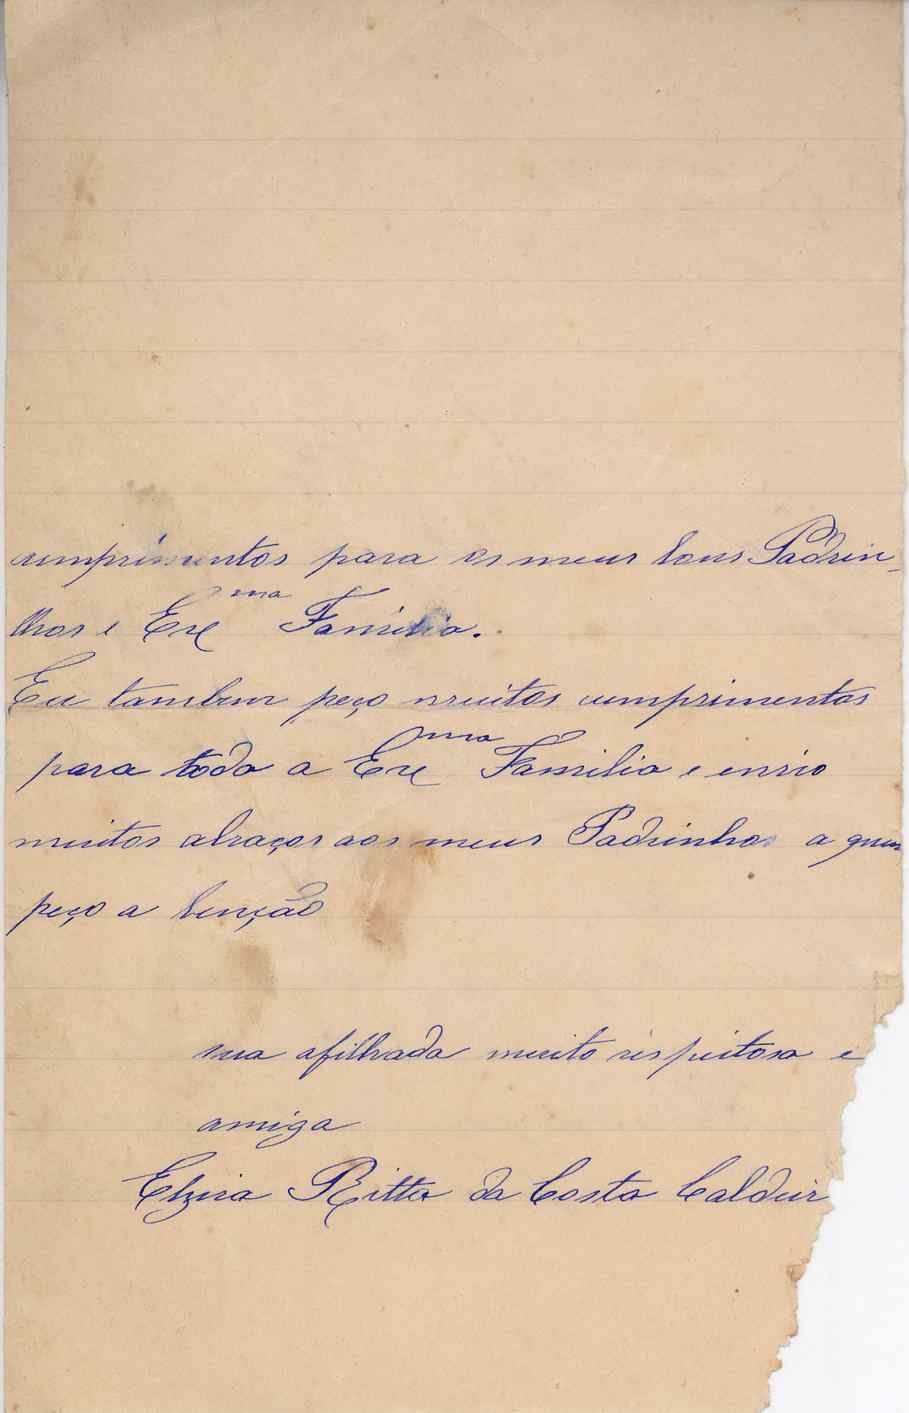 cumprimentos para os meus bons Padrin-
lhos e Exc^ma Familia.
Eu tambem peço muitos cumprimentos
para toda a Exc^ma Familia e envio
muitos abraços aos meus Padrinhos a quem
peço a benção
sua afilhada muito respeitosa e
amiga
Elzira Ritta da Costa Caldeir